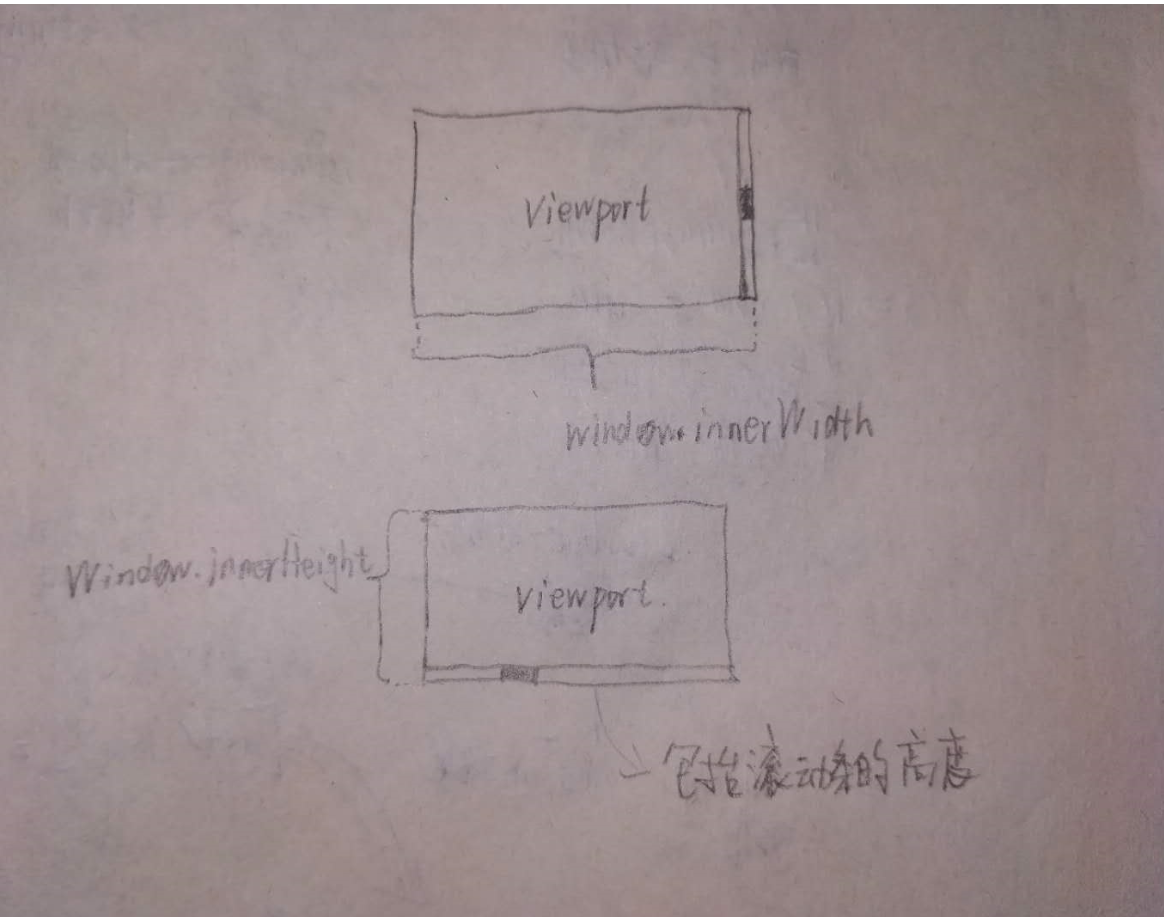 Viewport
window.innerWidth
Window.innerHeight
viewport.
包括滚动条的高度